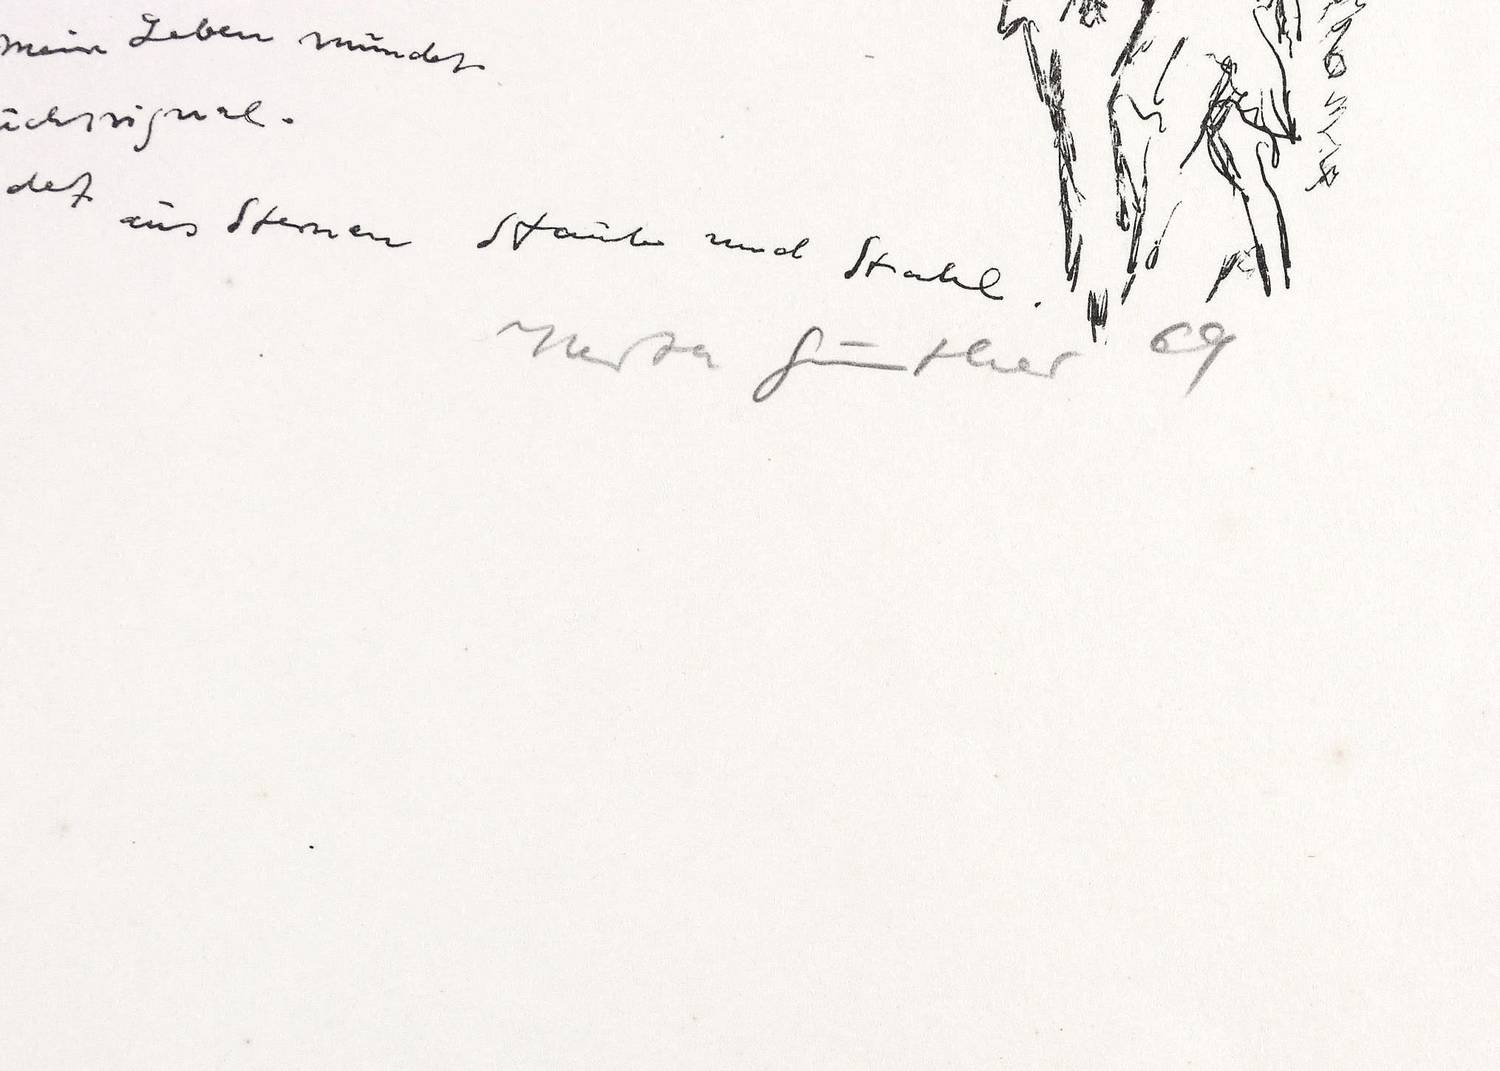 mein Leben mündet
ückssignal.
det aus Sternen Staub und Stahl.
Herta Günther 69